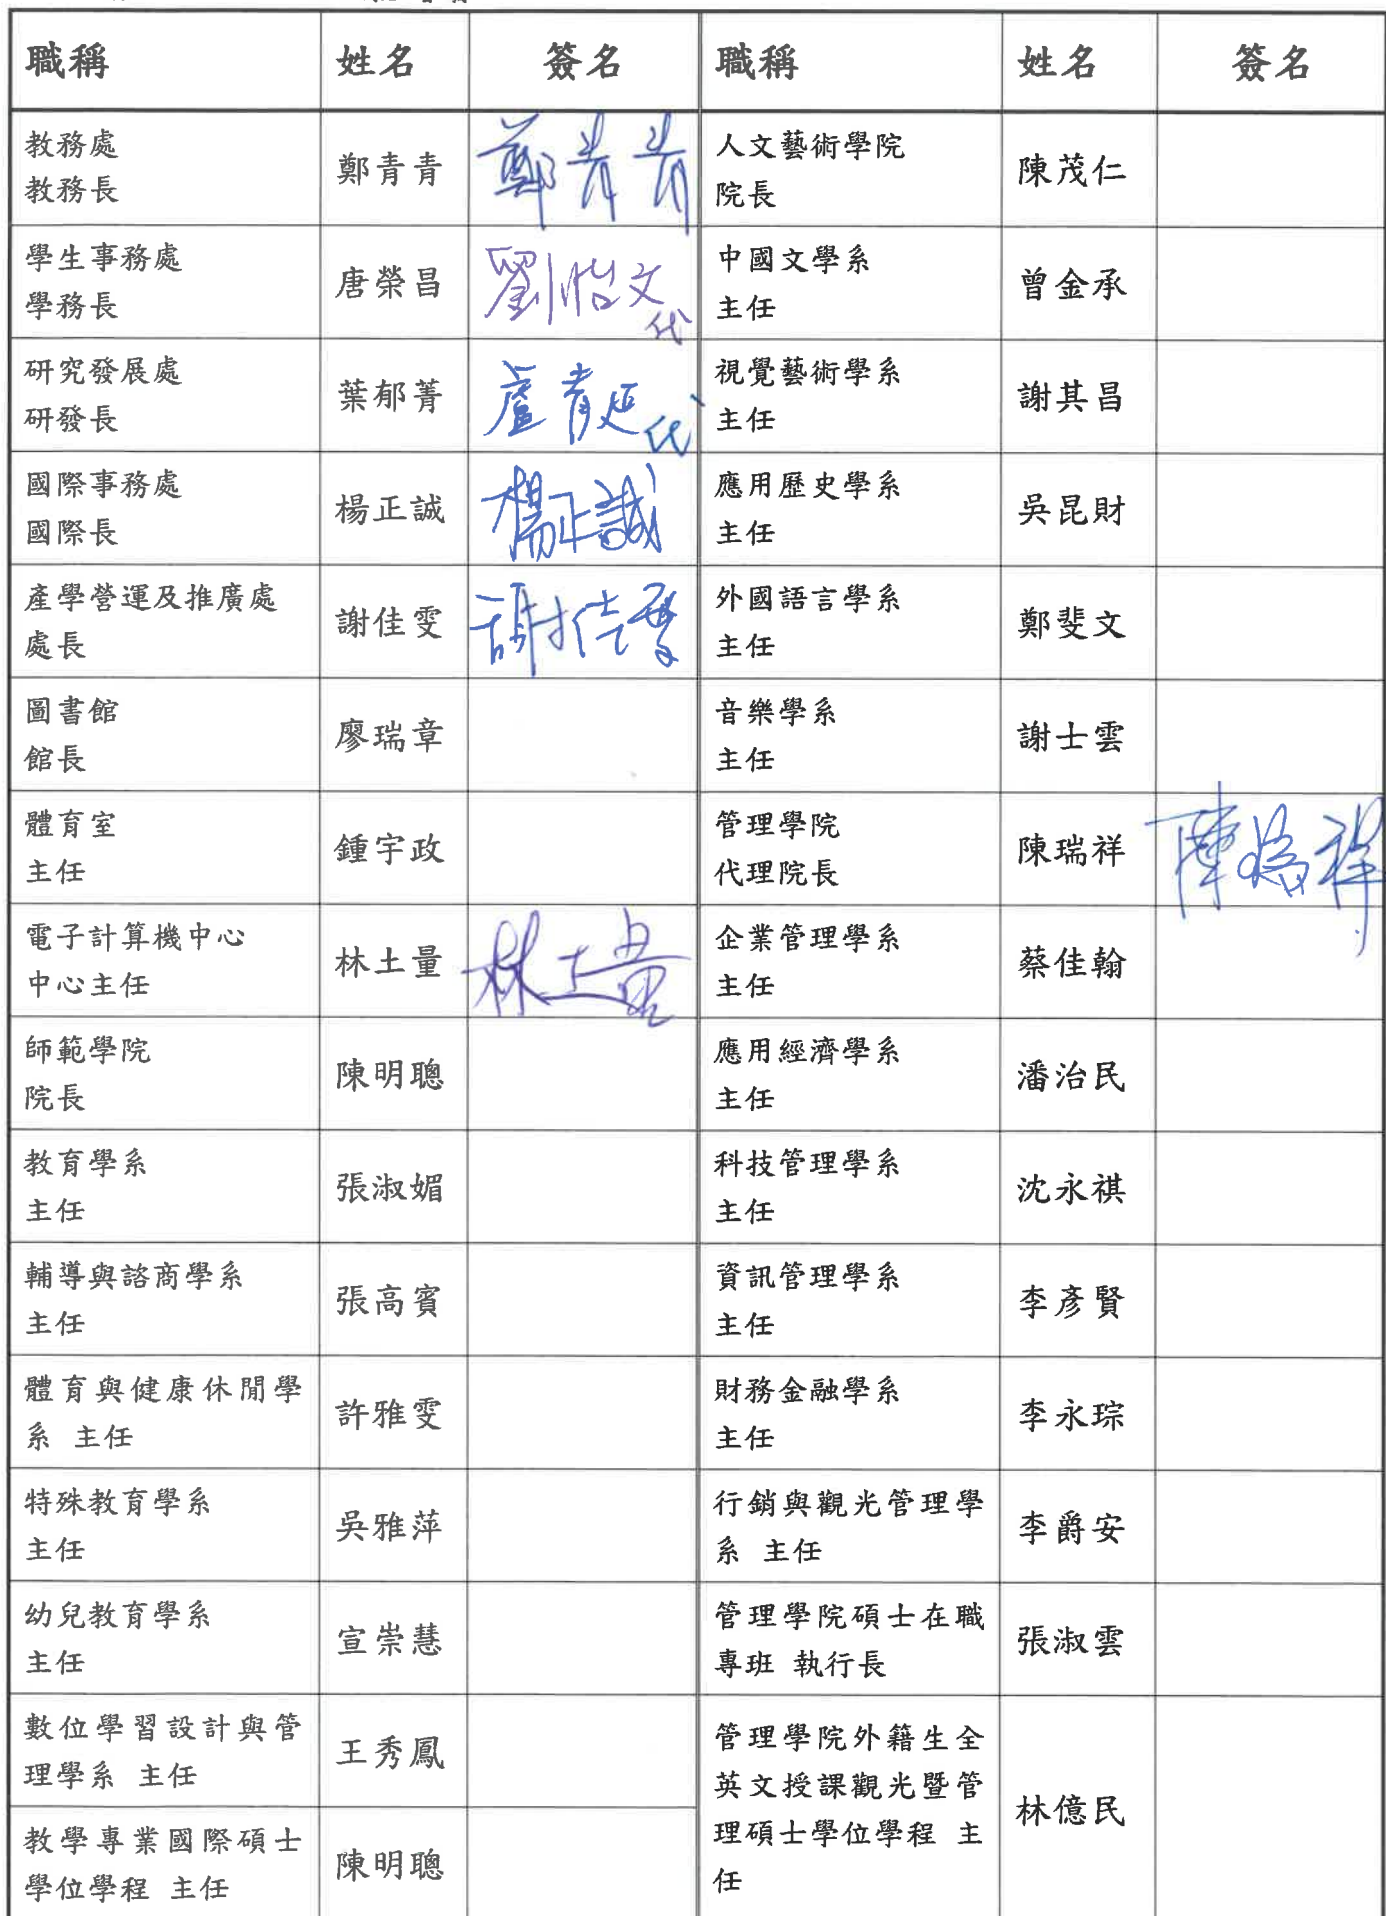 職稱 姓名 簽名 職稱 姓名 簽名
教務處
教務長 鄭青青 鄭青青
人文藝術學院
院長 陳茂仁
學生事務處
學務長 唐榮昌 劉怡文代
中國文學系
主任 曾金承
研究發展處
研發長 葉郁菁 盧青延代
視覺藝術學系
主任 謝其昌
國際事務處
國際長 楊正誠 楊正誠
應用歷史學系
主任 吳昆財
產學營運及推廣處
處長 謝佳雯 謝佳雯
外國語言學系
主任 鄭斐文
圖書館
館長 廖瑞章
音樂學系
主任 謝士雲
體育室
主任 鍾宇政
管理學院
代理院長 陳瑞祥 陳瑞祥
電子計算機中心
中心主任 林土量 林土量
企業管理學系
主任 蔡佳翰
師範學院
院長 陳明聰
應用經濟學系
主任 潘治民
教育學系
主任 張淑媚
科技管理學系
主任 沈永祺
輔導與諮商學系
主任 張高賓
資訊管理學系
主任 李彥賢
體育與健康休閒學
系 主任 許雅雯
財務金融學系
主任 李永琮
特殊教育學系
主任 吳雅萍
行銷與觀光管理學
系 主任 李爵安
幼兒教育學系
主任 宣崇慧
管理學院碩士在職
專班 執行長 張淑雲
數位學習設計與管
理學系 主任 王秀鳳
教學專業國際碩士
學位學程 主任 陳明聰
管理學院外籍生全
英文授課觀光暨管
理碩士學位學程 主
任 林億民